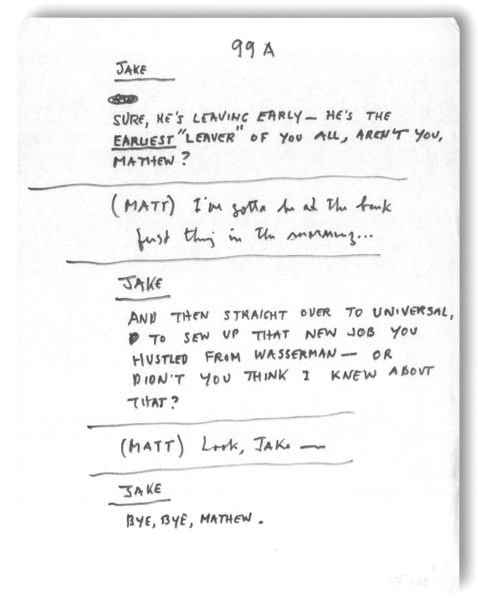 99A
JAKE
SURE, HE'S LEAVING EARLY — HE'S THE
EARLIEST "LEAVER" OF YOU ALL, AREN'T YOU,
MATHEW?
(MATT) I'm gotta be at the bank
first thing in the morning...
JAKE
AND THEN STRAIGHT OVER TO UNIVERSAL,
TO SEW UP THAT NEW JOB YOU
HUSTLED FROM WASSERMAN — OR
DIDN'T YOU THINK I KNEW ABOUT
THAT?
(MATT) Look, JAKE —
JAKE
BYE, BYE, MATHEW.